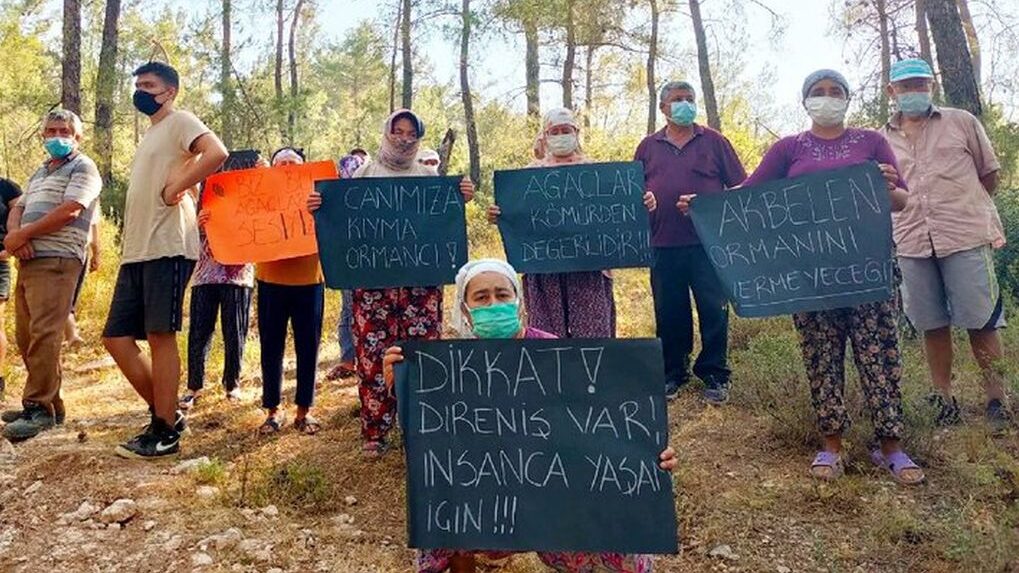 BİZ BU
AĞAÇLAR
SESİ
CANIMIZA
KIYMA
ORMANCI!
AĞAÇLAR
KÖMÜRDEN
DEĞERLİDİR!!
AKBELEN
ORMANINI
VERMEYECEĞİ
DİKKAT!
DİRENİŞ VAR!
İNSANCA YAŞAM
İÇİN!!!